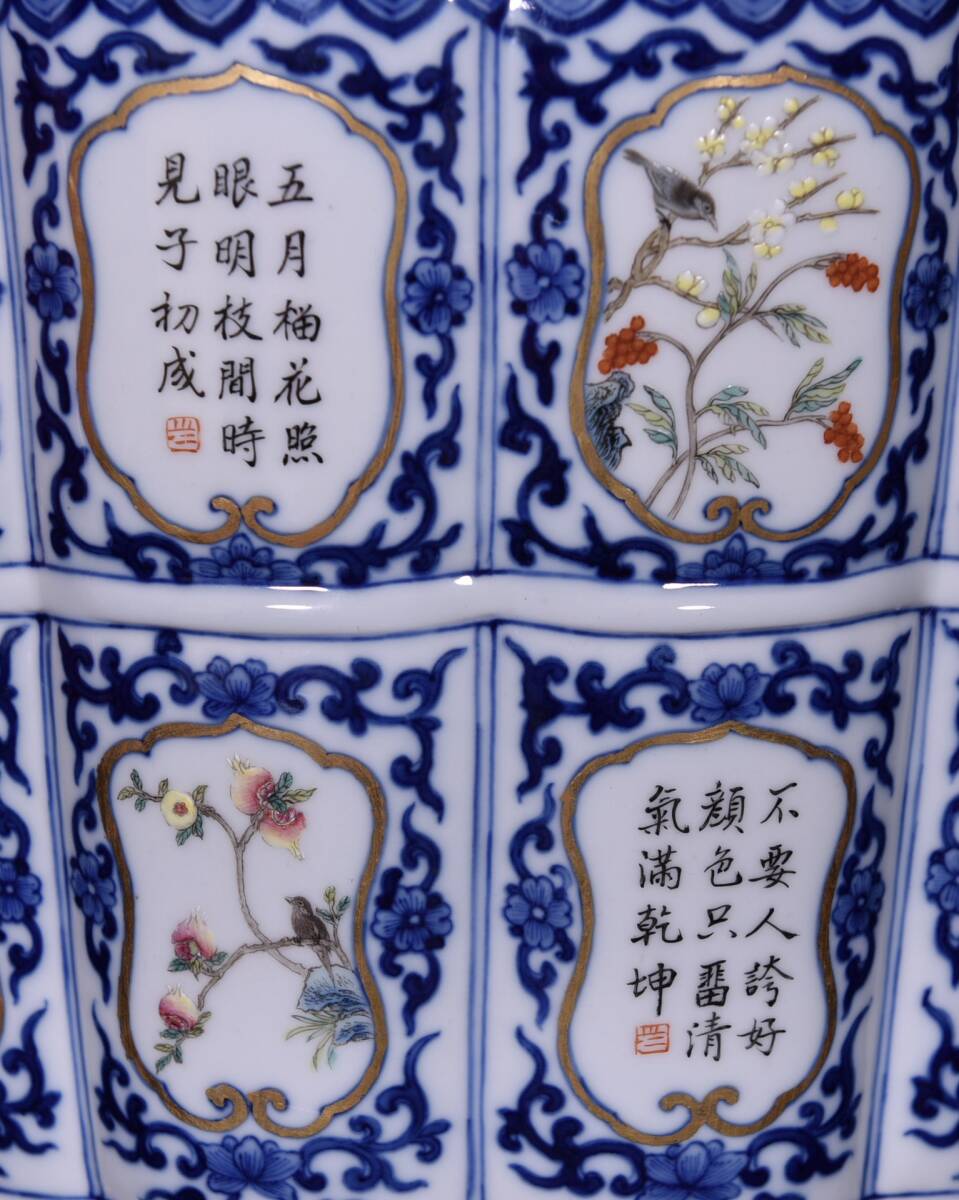 五月榴花照
眼明枝間時
見子初成
不要人誇好
顔色只畱清
氣滿乾坤